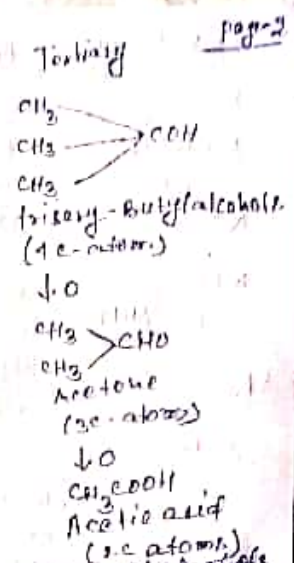 page-2
Tertiary
CH3
CH3 COH
CH3
trisery-Butylalcohols.
(4 c-atom.)
↓O
CH3
CHO
CH3
Acetone
(3c-atoms)
↓O
CH3COOH
Acetic acid
(2.c atoms.)